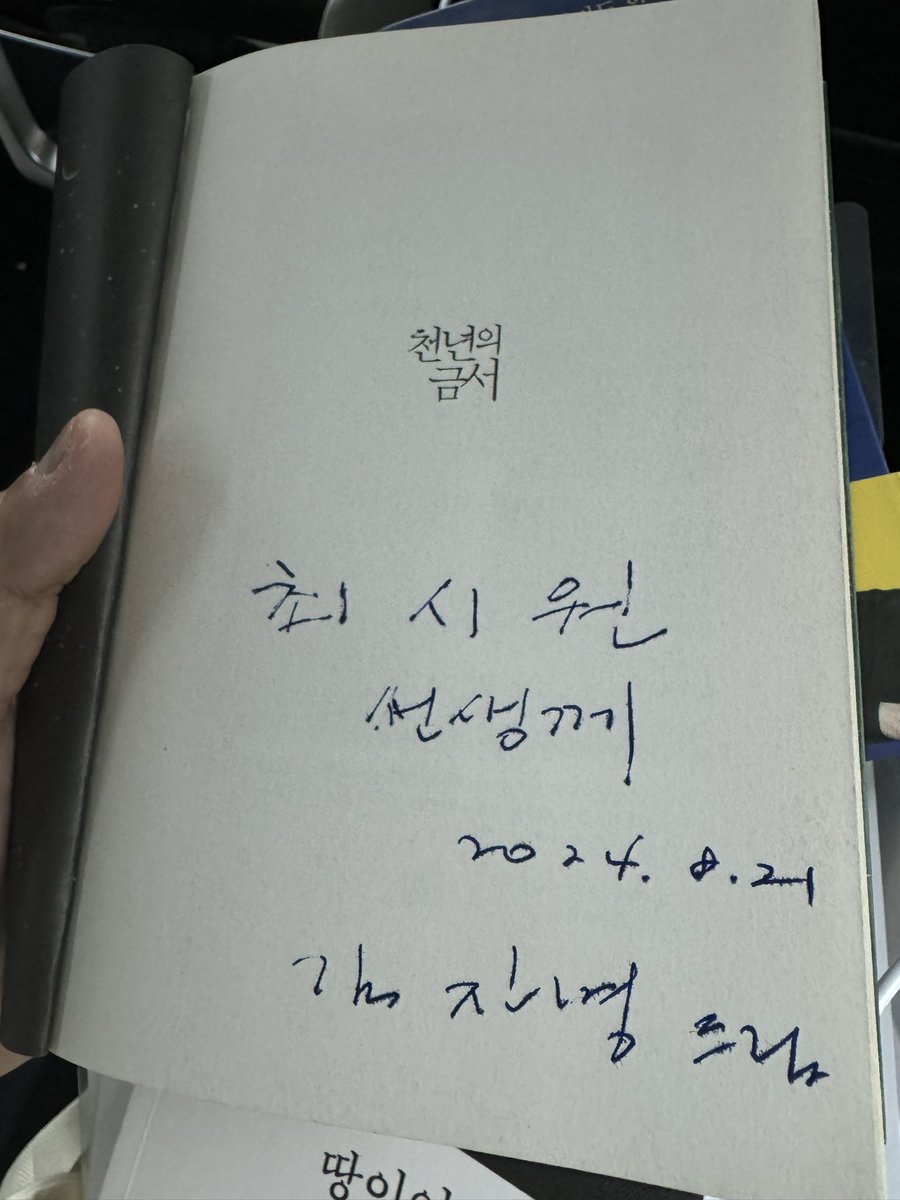 천년의
금서
최 시 원
썬생께
2024. 8. 21
김 진명 드림
땅이